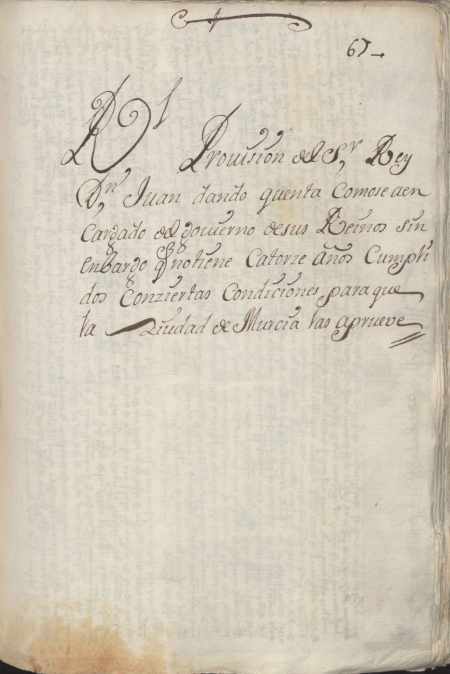 67
Rl Provision del Sr Rey
Dn Juan dando quenta Comose aen
Cargado del govierno desus Reinos sin
enbargo qe notiene Catorze años Cumpli
dos Conziertas Condiciones paraque
la Ziudad de Murcia las aprueve